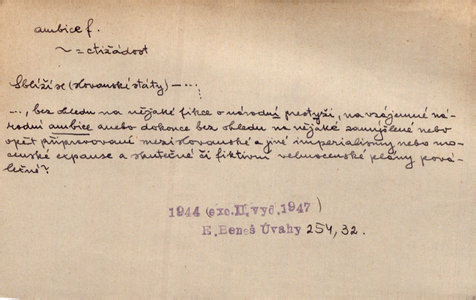 ambice f.
~ = ctižádost
Sblíží se (slovanské státy) — ...
..., bez ohledu na nějaké fikce o národní prestyži, na vzájemné ná-
rodní ambice anebo dokonce bez ohledu na nějaké zamyšlené nebo
opět připravované mezislovanské a jiné imperialismy nebo mo-
censké expanse a skutečné či fiktivní velmocenské plány pová-
lečné?
1944 (exc. II. vyd. 1947)
E. Beneš Úvahy 254, 32.